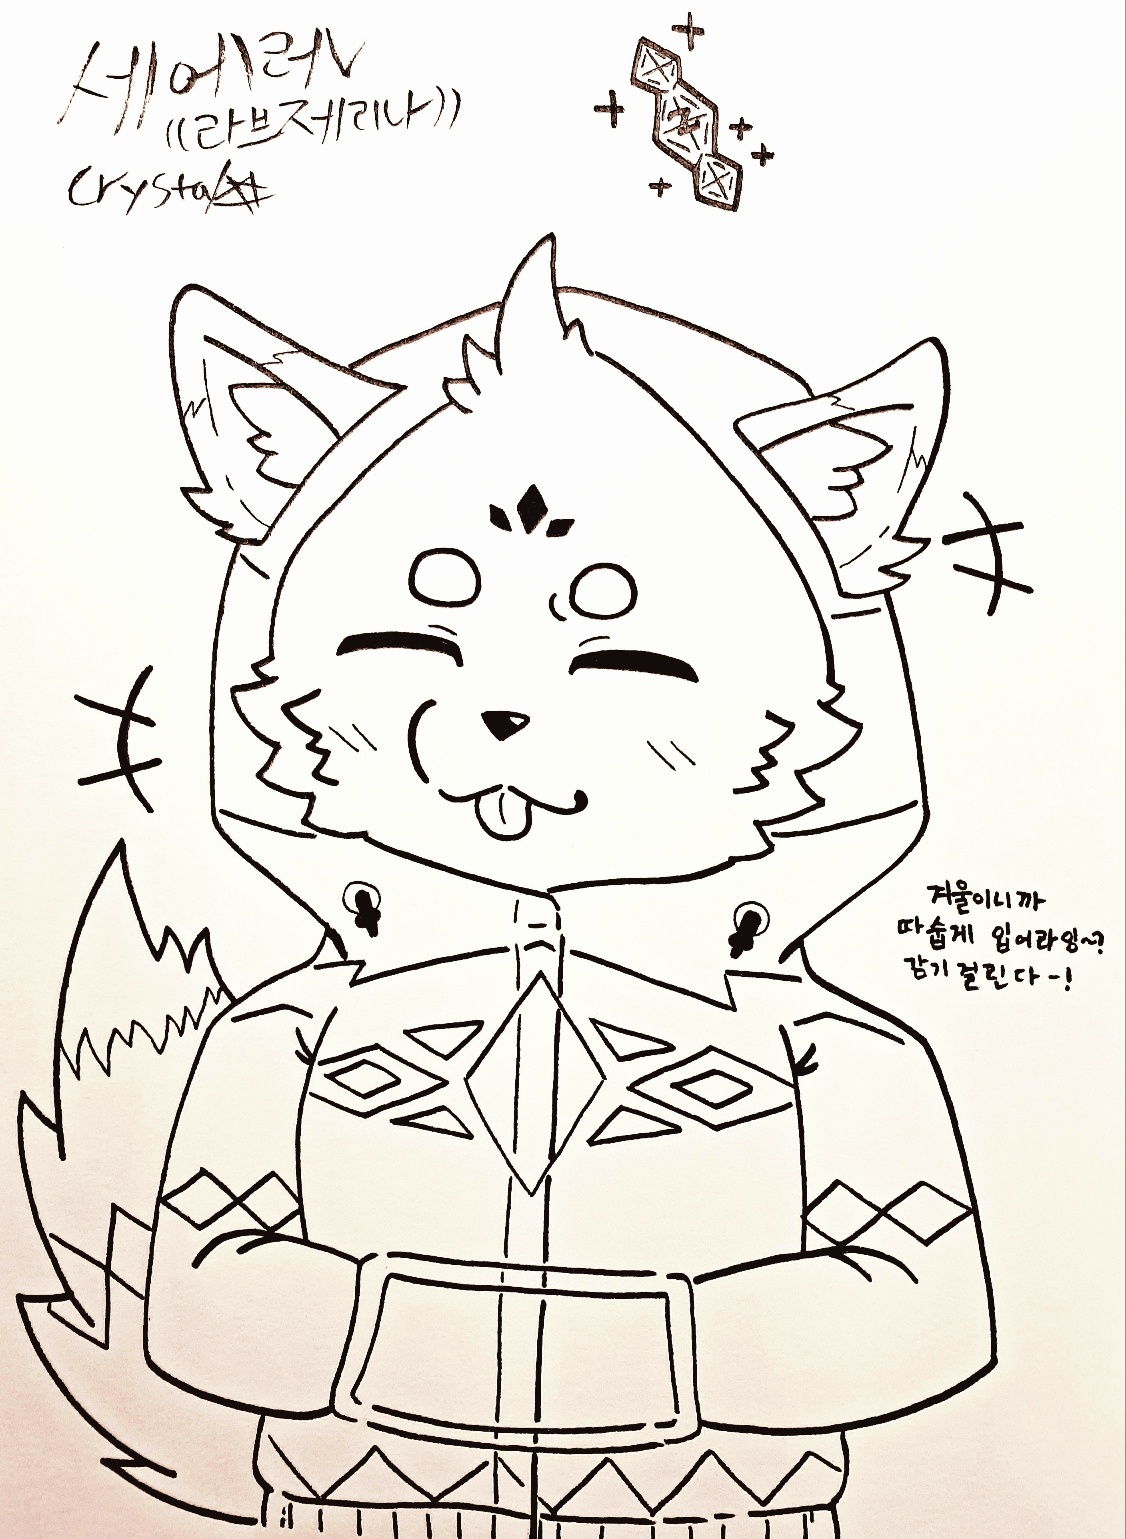 세에런
((라브제리나))
Crystal
겨울이니까
따숩게 입어라잉~?
감기 걸린다-!